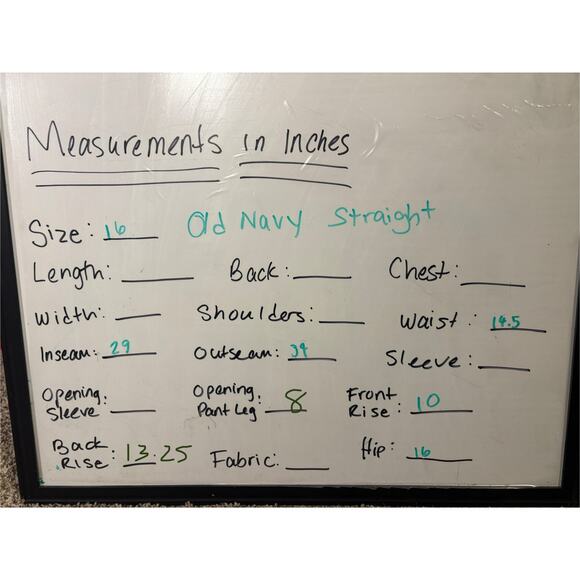 Measurements in Inches
Size: 16 Old Navy Straight
Length: Back: Chest:
Width: Shoulders: Waist: 14.5
Inseam: 29 Outseam: 39 Sleeve:
Opening Sleeve: Opening Pant Leg: 8 Front Rise: 10
Back Rise: 13.25 Fabric: Hip: 16